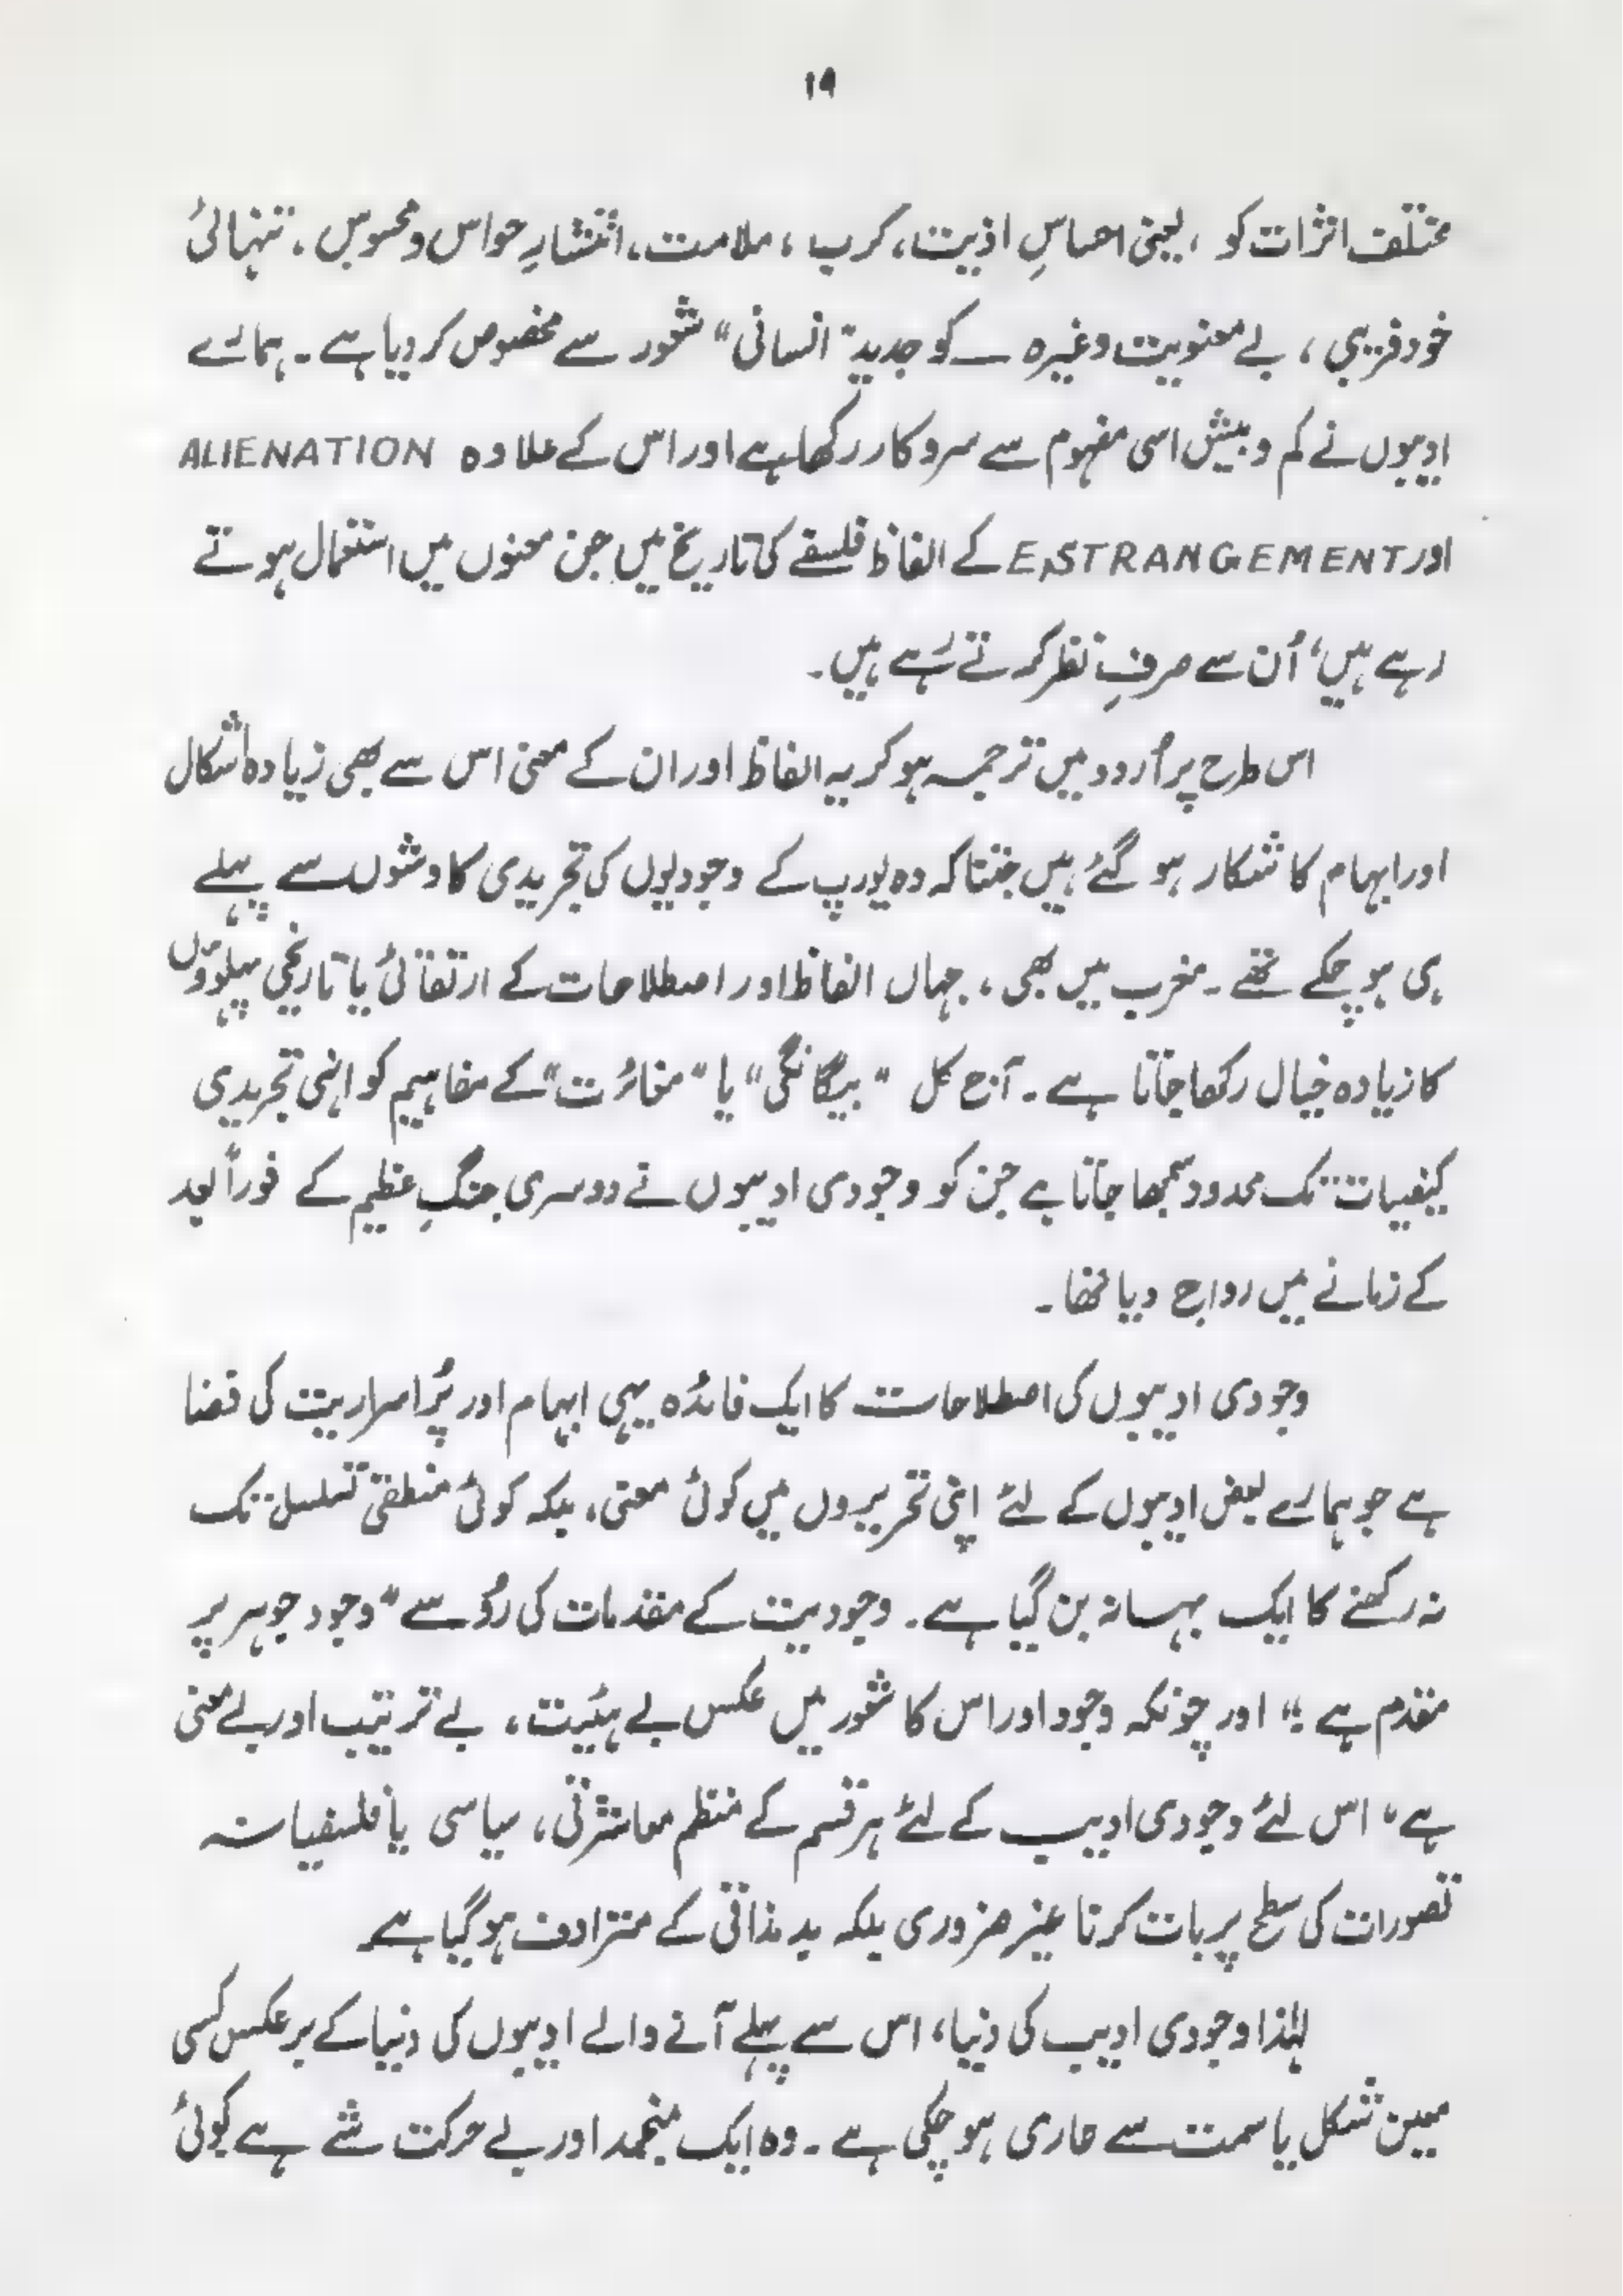 ۱۹
مختلف اثرات کو ، یعنی احساسِ اذیت، کرب ، ملامت، انتشارِ حواس و محسوس ، تنہائی
خود فریبی ، بے معنویت وغیرہ — کو جدید "انسانی" شعور سے مخصوص کر دیا ہے ۔ ہمارے
ادیبوں نے کم و بیش اسی مفہوم سے سروکار رکھا ہے اور اس کے علاوہ ALIENATION
اور ESTRANGEMENT کے الفاظ فلسفے کی تاریخ میں جن معنوں میں استعمال ہوتے
رہے ہیں، اُن سے صرفِ نظر کرتے رہے ہیں ۔
اس طرح پر اُردو میں ترجمہ ہو کر یہ الفاظ اور ان کے معنی اس سے بھی زیادہ اشکال
اور ابہام کا شکار ہو گئے ہیں جتنا کہ وہ یورپ کے وجودیوں کی تجریدی کاوشوں سے پہلے
ہی ہو چکے تھے ۔ مغرب میں بھی ، جہاں الفاظ اور اصطلاحات کے ارتقائی یا تاریخی پہلوؤں
کا زیادہ خیال رکھا جاتا ہے ۔ آج کل "بیگانگی" یا "مغائرت" کے مفاہیم کو انہی تجریدی
کیفیات تک محدود سمجھا جاتا ہے جن کو وجودی ادیبوں نے دوسری جنگِ عظیم کے فوراً بعد
کے زمانے میں رواج دیا تھا ۔
وجودی ادیبوں کی اصطلاحات کا ایک فائدہ یہی ابہام اور پُراسراریت کی فضا
ہے جو ہمارے بعض ادیبوں کے لئے اپنی تحریروں میں کوئی معنی، بلکہ کوئی منطقی تسلسل تک
نہ رکھنے کا ایک بہانہ بن گیا ہے ۔ وجودیت کے مقدمات کی رُو سے "وجود جوہر پر
مقدم ہے ؛" اور چونکہ وجود اور اس کا شعور میں عکس بے ہیئت ، بے ترتیب اور بے معنی
ہے، اس لئے وجودی ادیب کے لئے ہر قسم کے منظم معاشرتی، سیاسی یا فلسفیانہ
تصورات کی سطح پر بات کرنا غیر ضروری بلکہ بد مذاقی کے مترادف ہو گیا ہے
لہٰذا وجودی ادیب کی دنیا، اس سے پہلے آنے والے ادیبوں کی دنیا کے برعکس کسی
معین شکل یا سمت سے عاری ہو چکی ہے ۔ وہ ایک منجمد اور بے حرکت شے ہے کوئی